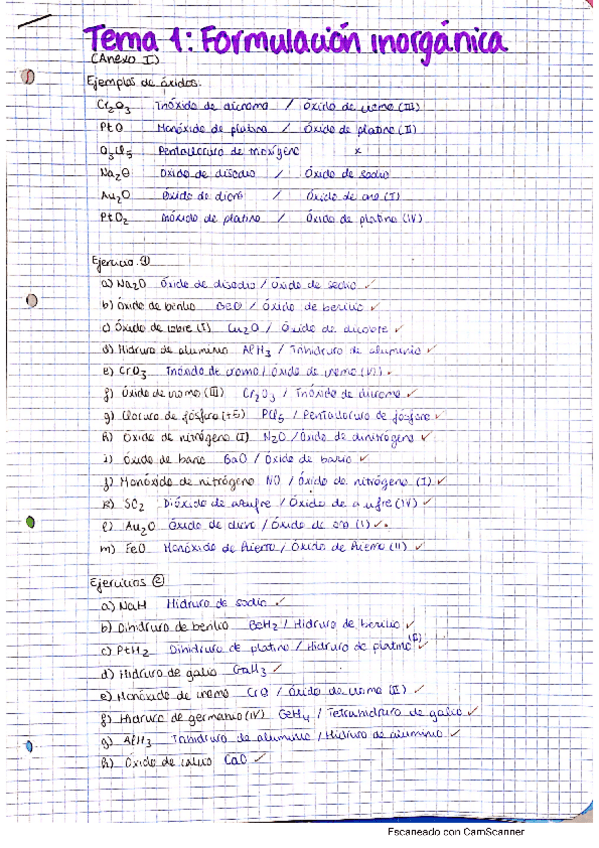 Tema 1: Formulación inorgánica
(Anexo I)
Ejemplos de óxidos.
Cr2O3 Trióxido de dicromo / Óxido de cromo (III)
PtO Monóxido de platino / Óxido de platino (II)
Pentacloruro de trioxígeno x
Na2O Óxido de disodio / Óxido de sodio
Au2O Óxido de dioro / Óxido de oro (I)
PtO2 Dióxido de platino / Óxido de platino (IV)
Ejercicio ①
a) Na2O Óxido de disodio / Óxido de sodio ✓
b) Óxido de berilio BeO / Óxido de berilio ✓
c) Óxido de cobre (I) Cu2O / Óxido de dicobre ✓
d) Hidruro de aluminio AlH3 / Trihidruro de aluminio ✓
e) CrO3 Trióxido de cromo / Óxido de cromo (VI) ✓
f) Óxido de cromo (III) Cr2O3 / Trióxido de dicromo ✓
g) Cloruro de fósforo (+5) PCl5 / Pentacloruro de fósforo ✓
h) Óxido de nitrógeno (I) N2O / Óxido de dinitrógeno ✓
i) Óxido de bario BaO / Óxido de bario ✓
j) Monóxido de nitrógeno NO / Óxido de nitrógeno (I) ✓
k) SO2 Dióxido de azufre / Óxido de azufre (IV) ✓
l) Au2O Óxido de dioro / Óxido de oro (I) ✓
m) FeO Monóxido de hierro / Óxido de hierro (II) ✓
Ejercicios ②
a) NaH Hidruro de sodio ✓
b) Dihidruro de berilio BeH2 / Hidruro de berilio ✓
c) PtH2 Dihidruro de platino / Hidruro de platino (II) ✓
d) Hidruro de galio GaH3 ✓
e) Monóxido de cromo CrO / Óxido de cromo (II) ✓
f) Hidruro de germanio (IV) GeH4 / Tetrahidruro de galio ✓
g) AlH3 Trihidruro de aluminio / Hidruro de aluminio ✓
h) Óxido de calcio CaO ✓
Escaneado con CamScanner